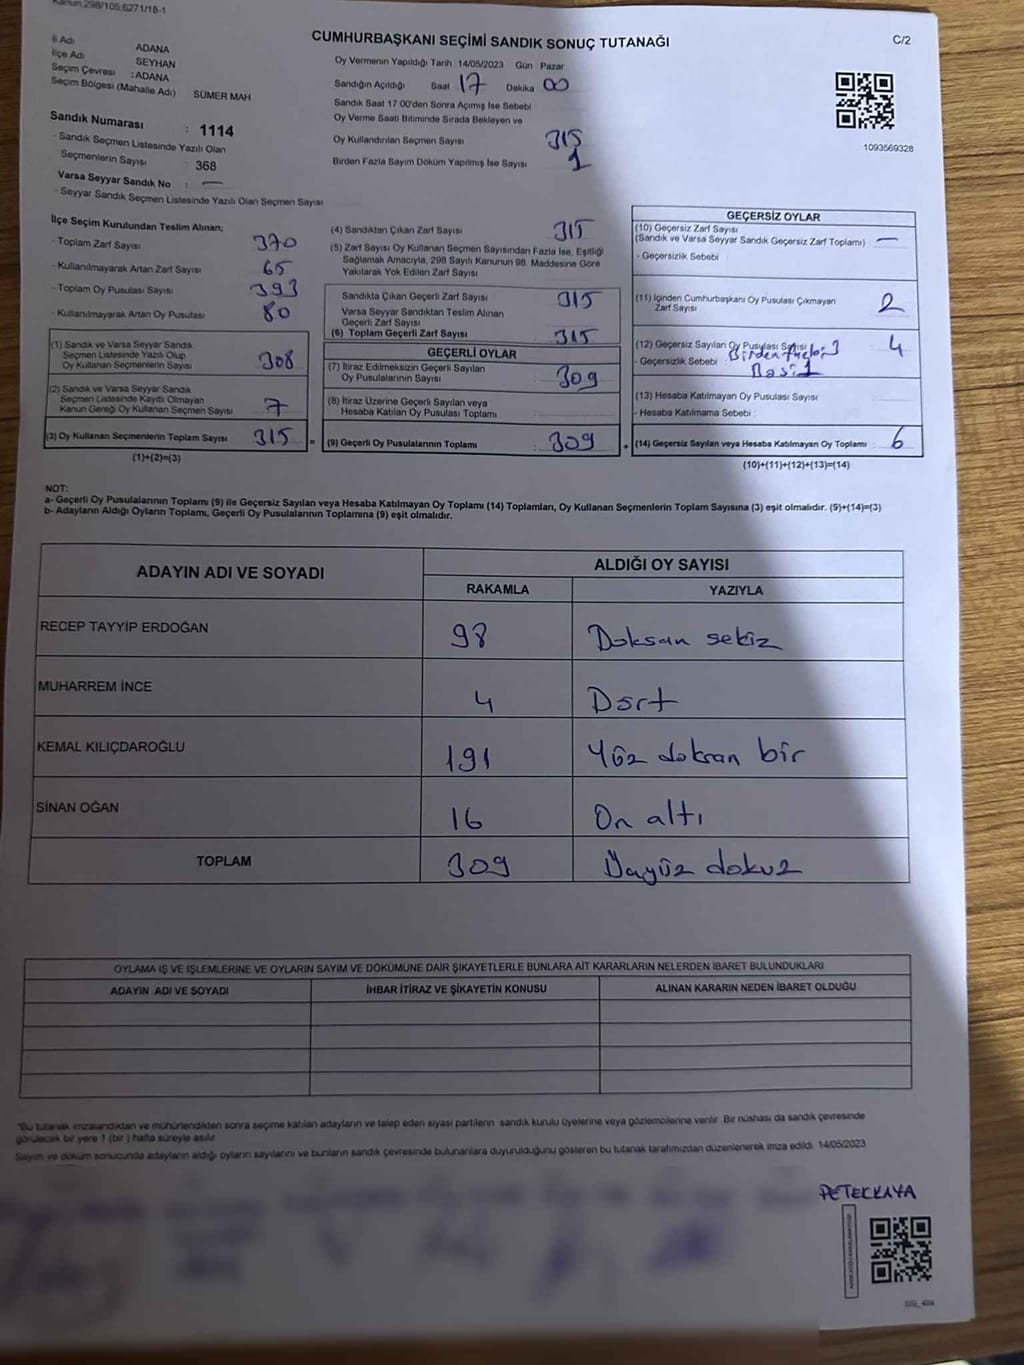 Kanun:298/105;6271/18-1
CUMHURBAŞKANI SEÇİMİ SANDIK SONUÇ TUTANAĞI
C/2
İl Adı ADANA
İlçe Adı SEYHAN
Seçim Çevresi :ADANA
Seçim Bölgesi (Mahalle Adı) SÜMER MAH
Sandık Numarası : 1114
- Sandık Seçmen Listesinde Yazılı Olan
Seçmenlerin Sayısı : 368
Varsa Seyyar Sandık No : —
- Seyyar Sandık Seçmen Listesinde Yazılı Olan Seçmen Sayısı
Oy Vermenin Yapıldığı Tarih 14/05/2023 Gün Pazar
Sandığın Açıldığı Saat 17 Dakika 00
Sandık Saat 17:00'den Sonra Açımış İse Sebebi
Oy Verme Saati Bitiminde Sırada Bekleyen ve
Oy Kullandırılan Seçmen Sayısı 315
Birden Fazla Sayım Döküm Yapılmış İse Sayısı 1
1093569328
İlçe Seçim Kurulundan Teslim Alınan;
- Toplam Zarf Sayısı 370
- Kullanılmayarak Artan Zarf Sayısı 65
- Toplam Oy Pusulası Sayısı 393
- Kullanılmayarak Artan Oy Pusulası 80
(1) Sandık ve Varsa Seyyar Sandık
Seçmen Listesinde Yazılı Olup
Oy Kullanan Seçmenlerin Sayısı 308
(2) Sandık ve Varsa Seyyar Sandık
Seçmen Listesinde Kayıtlı Olmayan
Kanun Gereği Oy Kullanan Seçmen Sayısı 7
(3) Oy Kullanan Seçmenlerin Toplam Sayısı 315 =
(1)+(2)=(3)
(4) Sandıktan Çıkan Zarf Sayısı 315
(5) Zarf Sayısı Oy Kullanan Seçmen Sayısından Fazla İse, Eşitliği
Sağlamak Amacıyla, 298 Sayılı Kanunun 98. Maddesine Göre
Yakılarak Yok Edilen Zarf Sayısı
Sandıkta Çıkan Geçerli Zarf Sayısı 315
Varsa Seyyar Sandıktan Teslim Alınan
Geçerli Zarf Sayısı
(6) Toplam Geçerli Zarf Sayısı 315
GEÇERLİ OYLAR
(7) İtiraz Edilmeksizin Geçerli Sayılan
Oy Pusulalarının Sayısı 309
(8) İtiraz Üzerine Geçerli Sayılan veya
Hesaba Katılan Oy Pusulası Toplamı
(9) Geçerli Oy Pusulalarının Toplamı 309 +
GEÇERSİZ OYLAR
(10) Geçersiz Zarf Sayısı
(Sandık ve Varsa Seyyar Sandık Geçersiz Zarf Toplamı) —
- Geçersizlik Sebebi
(11) İçinden Cumhurbaşkanı Oy Pusulası Çıkmayan
Zarf Sayısı 2
(12) Geçersiz Sayılan Oy Pusulası Sayısı 4
- Geçersizlik Sebebi : Birden
(13) Hesaba Katılmayan Oy Pusulası Sayısı
- Hesaba Katılmama Sebebi :
(14) Geçersiz Sayılan veya Hesaba Katılmayan Oy Toplamı : 6
(10)+(11)+(12)+(13)=(14)
NOT:
a- Geçerli Oy Pusulalarının Toplamı (9) ile Geçersiz Sayılan veya Hesaba Katılmayan Oy Toplamı (14) Toplamları, Oy Kullanan Seçmenlerin Toplam Sayısına (3) eşit olmalıdır. (9)+(14)=(3)
b- Adayların Aldığı Oyların Toplamı, Geçerli Oy Pusulalarının Toplamına (9) eşit olmalıdır.
ADAYIN ADI VE SOYADI ALDIĞI OY SAYISI
RAKAMLA YAZIYLA
RECEP TAYYİP ERDOĞAN 98 Doksan sekiz
MUHARREM İNCE 4 Dört
KEMAL KILIÇDAROĞLU 191 Yüz doksan bir
SİNAN OĞAN 16 On altı
TOPLAM 309 Üçyüz dokuz
OYLAMA İŞ VE İŞLEMLERİNE VE OYLARIN SAYIM VE DÖKÜMÜNE DAİR ŞİKAYETLERLE BUNLARA AİT KARARLARIN NELERDEN İBARET BULUNDUKLARI
ADAYIN ADI VE SOYADI İHBAR İTİRAZ VE ŞİKAYETİN KONUSU ALINAN KARARIN NEDEN İBARET OLDUĞU
"Bu tutanak imzalandıktan ve mühürlendikten sonra seçime katılan adayların ve talep eden siyasi partilerin sandık kurulu üyelerine veya gözlemcilerine verilir. Bir nüshası da sandık çevresinde
görülecek bir yere 1 (bir ) hafta süreyle asılır
Sayım ve döküm sonucunda adayların aldığı oyların sayılarını ve bunların sandık çevresinde bulunanlara duyurulduğunu gösteren bu tutanak tarafımızdan düzenlenerek imza edildi. 14/05/2023
PETEKKAYA